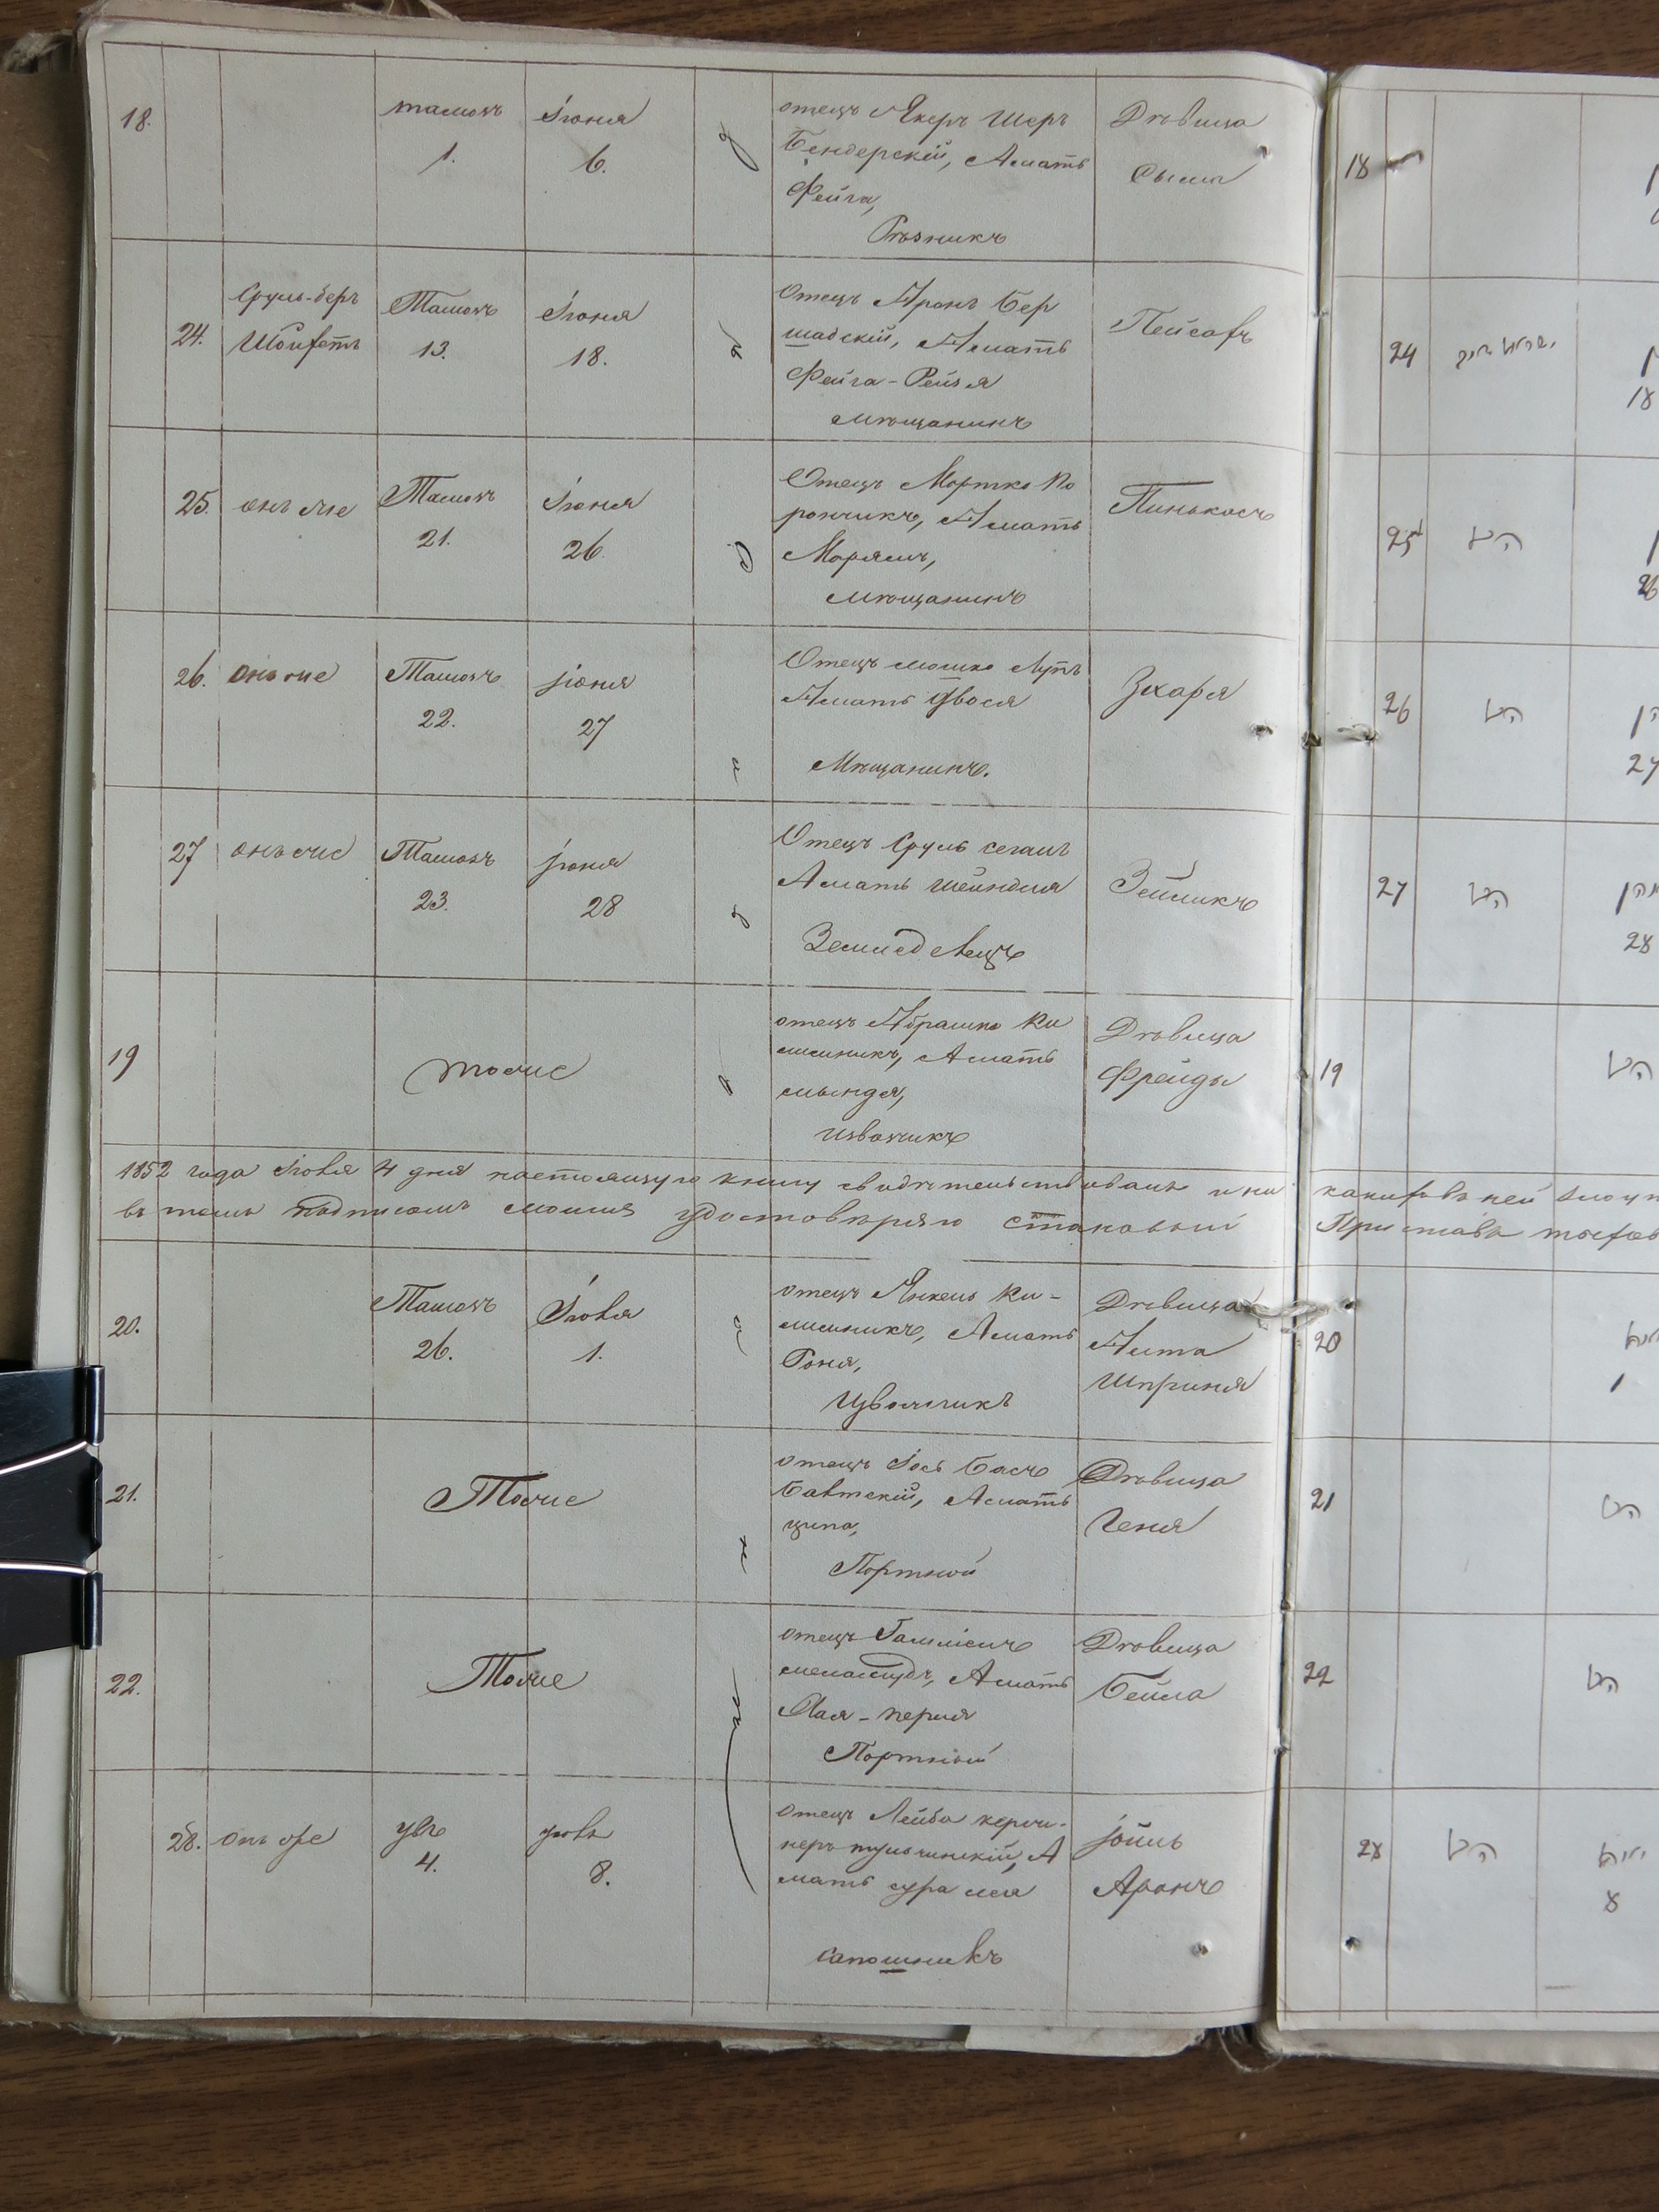 18.
тамозъ
1.
Іюня
6.
отецъ Янкерь Шеръ
Бендерскій, А мать
Фейга,
Рѣзникъ
Дѣвица
Сыма
18
24.
Сруль-беръ
Шойхетъ
Тамозъ
13.
Іюня
18.
Отецъ Аронъ Бер
шадскій, А мать
Фейга-Рейзя
мѣщанинъ
Пейсахъ
24
18
25.
онъ же
Тамозъ
21.
Іюня
26.
Отецъ Мортко Во
рончикъ, А мать
Марямъ,
мѣщанинъ
Пинькасъ
25
הנ״ל
26
26.
онъ же
Тамозъ
22.
іюня
27
Отецъ мошко Лупъ
А мать Цвося
Мѣщанинъ.
Зхаря
26
הנ״ל
27
27
онъ же
Тамозъ
23.
іюня
28
Отецъ Сруль сегалъ
А мать Шейндля
Земледѣлецъ
Зейликъ
27
הנ״ל
28
19
тоже
отецъ Абрашко Ки
лимникъ, А мать
мындя,
извозчикъ
Дѣвица
Фрейда
19
הנ״ל
1852 года Іюля 4 дня настоящую книгу свидѣтельствовалъ и ни какихъ въ ней
въ томъ подписомъ моимъ удостовѣряю становый Пристава
20.
Тамозъ
26.
Іюля
1.
отецъ Янкель Ки-
лимникъ, А мать
Роня,
Цвозчикъ
Дѣвица
Аита
Шпринця
20
1
21.
Тоже
отецъ Іось Басъ
Балтскій, А мать
ципа,
Портной
Дѣвица
Геня
21
הנ״ל
22.
Тоже
отецъ
А мать
Хая-перля
Портной
Дѣвица
Бейла
22
הנ״ל
28.
онъ же
увъ
4.
іюля
8.
отецъ Лейба кержи-
неръ тульчинскій, А
мать сура лея
сапошникъ
Іойль
Аронъ
28
הנ״ל
8